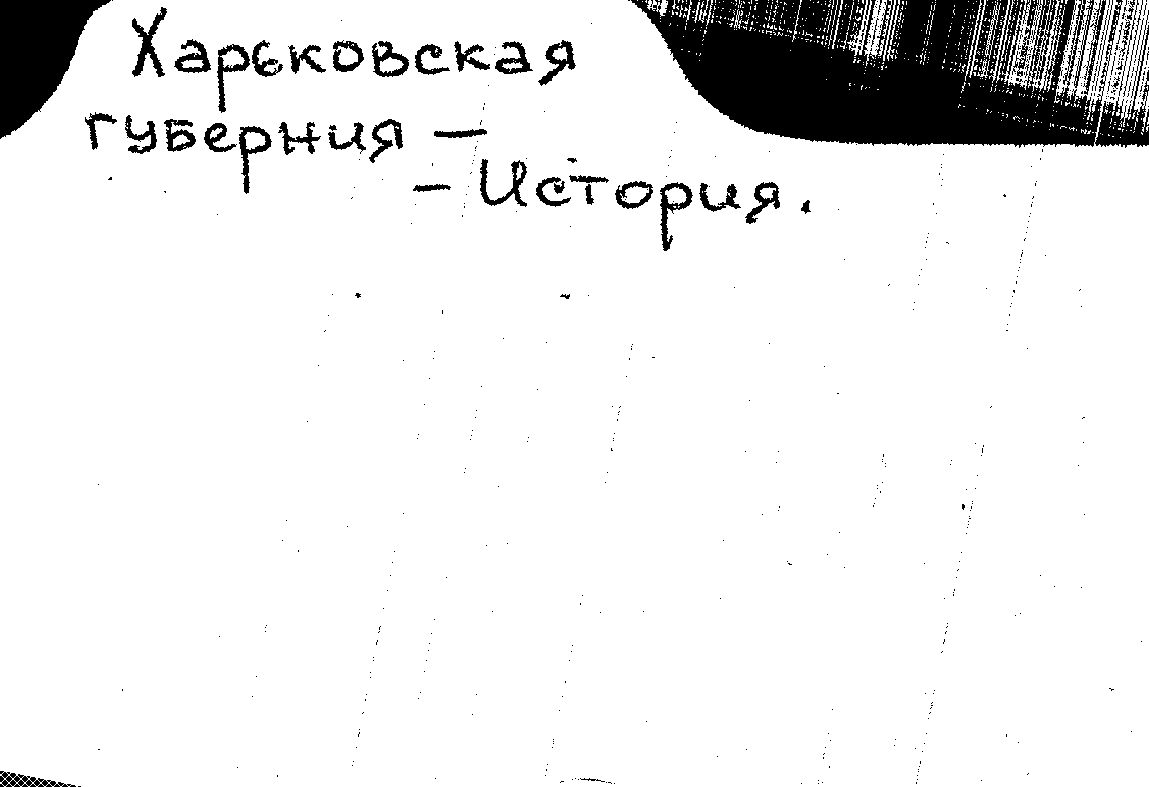 Харьковская
губерния –
– История.